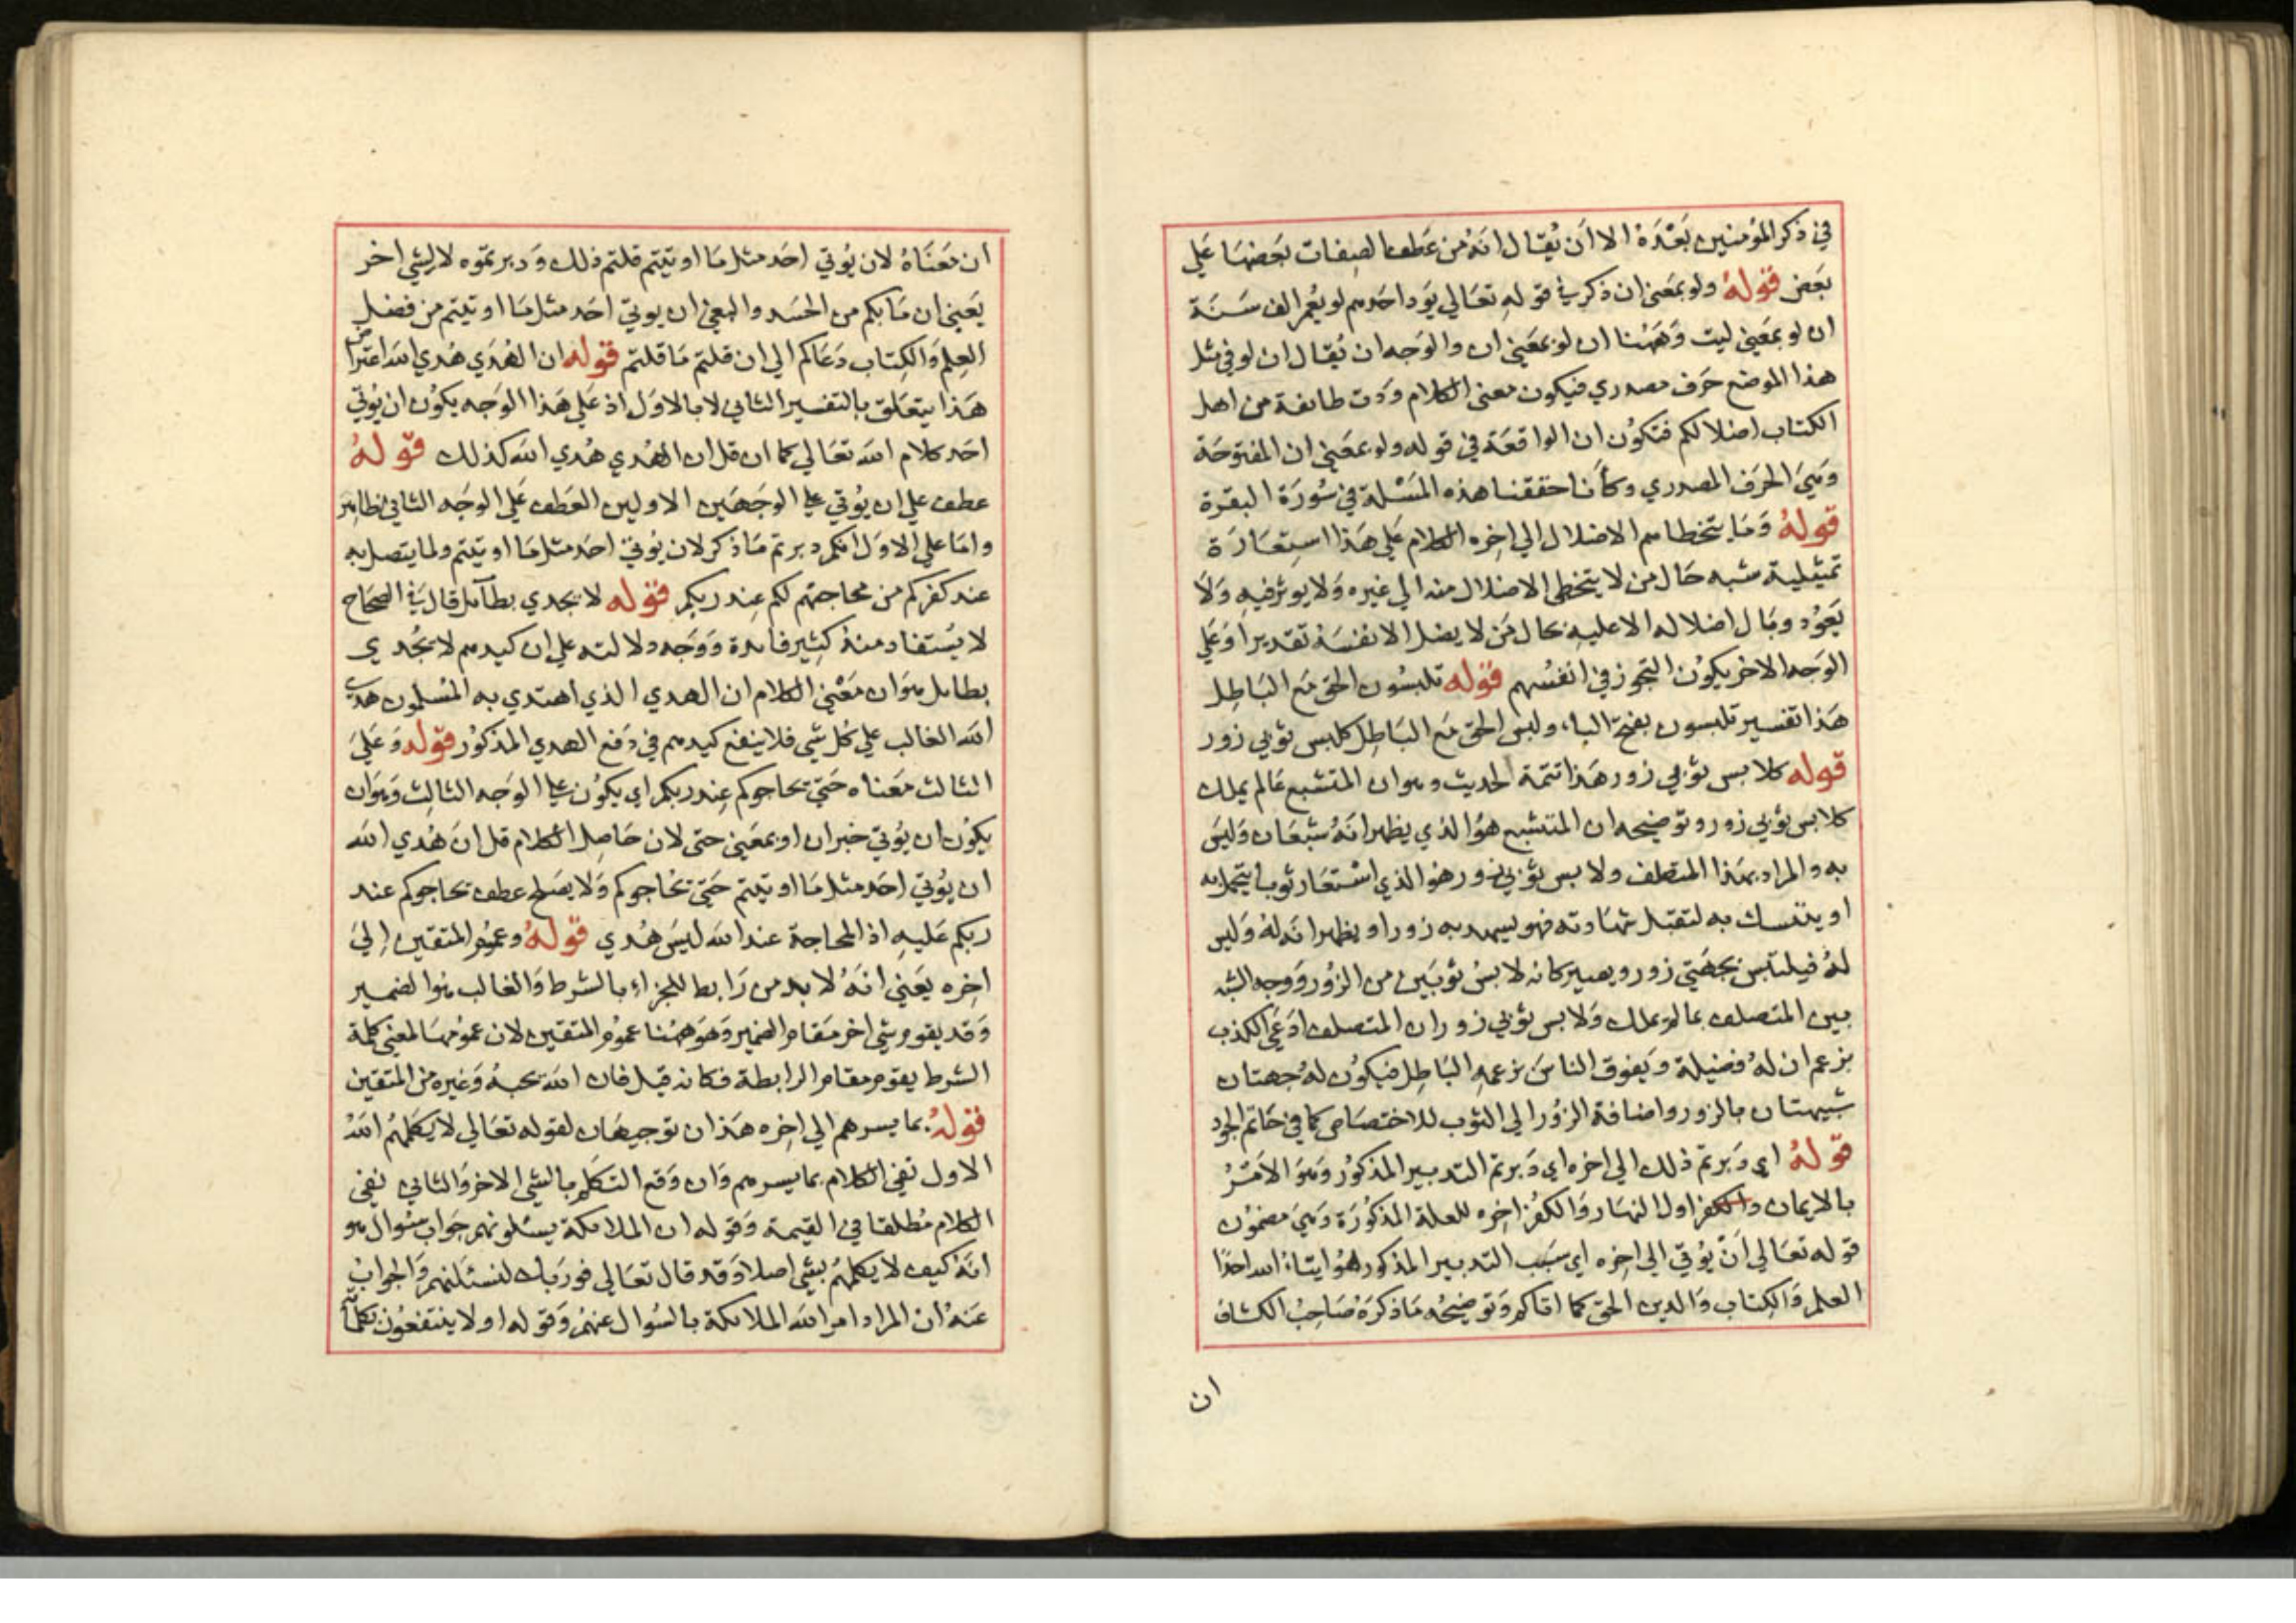 في ذكر المؤمنين بعده الا ان يقال انه من عطف الصفات بعضها علي
بعض قوله ولو بمعني ان ذكر في قوله تعالي يود احدهم لو يعمر الف سنة
ان لو بمعني ليت وههنا ان لو بمعني ان والوجه ان يقال ان لو في مثل
هذا الموضع حرف مصدري فيكون معني الكلام ودت طائفة من اهل
الكتاب اضلالكم فتكون ان الواقعة في قوله ولو بمعني ان المفتوحة
وهي الحرف المصدري وكأنا حققنا هذه المسئلة في سورة البقرة
قوله وما يتخطاهم الاضلال الي اخره الكلام علي هذا استعارة
تمثيلية شبه حال من لا يتخطي الاضلال منه الي غيره ولا يوثر فيه ولا
يعود وبال اضلاله الا عليه بحال من لا يضل الا نفسه تقديرا وعلي
الوجه الاخر يكون التجوز في انفسهم قوله تلبسون الحق مع الباطل
هذا تفسير تلبسون بفتح الباء ولبس الحق مع الباطل كلبس ثوبي زور
قوله كلابس ثوبي زور هذا تتمة الحديث وهو ان المتشبع بما لم يملك
كلابس ثوبي زور وتوضيحه ان المتشبع هو الذي يظهر انه شبعان وليس
به والمراد بهذا المتصلف ولابس ثوبي زور هو الذي استعار ثوبا يتجمل به
او يتنسك به لتقبل شهادته فهو يشهد به زورا و يظهر انه له وليس
له فيلتبس بجهتي زور ويصير كانه لابس ثوبين من الزور ووجه الشبه
بين المتصلف بما لم يملك ولابس ثوبي زور ان المتصلف ادعي الكذب
بزعم ان له فضيلة ويفوق الناس بزعمه الباطل فيكون له جهتان
شبيهتان بالزور واضافة الزور الي الثوب للاختصاص كما في حاتم الجود
قوله اي دبرتم ذلك الي اخره اي دبرتم التدبير المذكور وهو الامر
بالايمان والكفر اول النهار والكفر اخره للعلة المذكورة وهي مضمون
قوله تعالي ان يؤتي الي اخره اي سبب التدبير المذكور هو ايتاء الله احدا
العلم والكتاب والدين الحق كما اتاكم وتوضيحه ما ذكره صاحب الكشاف
ان
ان معناه لان يؤتي احد مثل ما اوتيتم قلتم ذلك ودبرتموه لا لشي اخر
يعني ان ما بكم من الحسد والبغي ان يوتي احد مثل ما اوتيتم من فضل
العلم والكتاب دعاكم الي ان قلتم ما قلتم قوله ان الهدي هدي الله اعتراض
هذا يتعلق بالتفسير الثاني لا بالاول اذ علي هذا الوجه يكون ان يؤتي
احد كلام الله تعالي كما ان قل ان الهدي هدي الله كذلك قوله
عطف علي ان يؤتي علي الوجهين الاولين العطف علي الوجه الثاني ظاهر
واما علي الاول انكم دبرتم ما ذكر لان يؤتي احد مثل ما اوتيتم ولما يتصل به
عند كفركم من محاجتهم لكم عند ربكم قوله لا يجدي بطائل قال في الصحاح
لا يستفاد منه كثير فائدة ووجه دلالته علي ان كيدهم لا يجدي
بطايل هو ان معني الكلام ان الهدي الذي اهتدي به المسلمون هدي
الله الغالب علي كل شي فلا ينفع كيدهم في دفع الهدي المذكور قوله وعلي
الثالث معناه حتي يحاجوكم عند ربكم اي يكون علي الوجه الثالث وهو ان
يكون ان يؤتي خبر ان او بمعني حتي لان حاصل الكلام قل ان هدي الله
ان يؤتي احد مثل ما اوتيتم حتي يحاجوكم ولا يصلح عطف يحاجوكم عند
ربكم عليه اذ المحاجة عند الله ليس هدي قوله وعموم المتقين الي
اخره يعني انه لا بد من رابط للجزاء بالشرط والغالب هو الضمير
وقد يقوم شي اخر مقام الضمير وهو ههنا عموم المتقين لان عمومها لمعني كلمة
الشرط يقوم مقام الرابطة فكانه قيل فان الله يحبه وغيره من المتقين
قوله بما يسرهم الي اخره هذان توجيهان لقوله تعالي لا يكلمهم الله
الاول نفي الكلام بما يسرهم وان وقع التكلم بالشي الاخر والثاني نفي
الكلام مطلقا في القيمة وقوله ان الملائكة يسئلونهم جواب سؤال هو
انه كيف لا يكلمهم بشي اصلا وقد قال تعالي فوربك لنسئلنهم والجواب
عنه ان المراد امر الله الملائكة بالسؤال عنهم وقوله او لا ينتفعون بكلمات